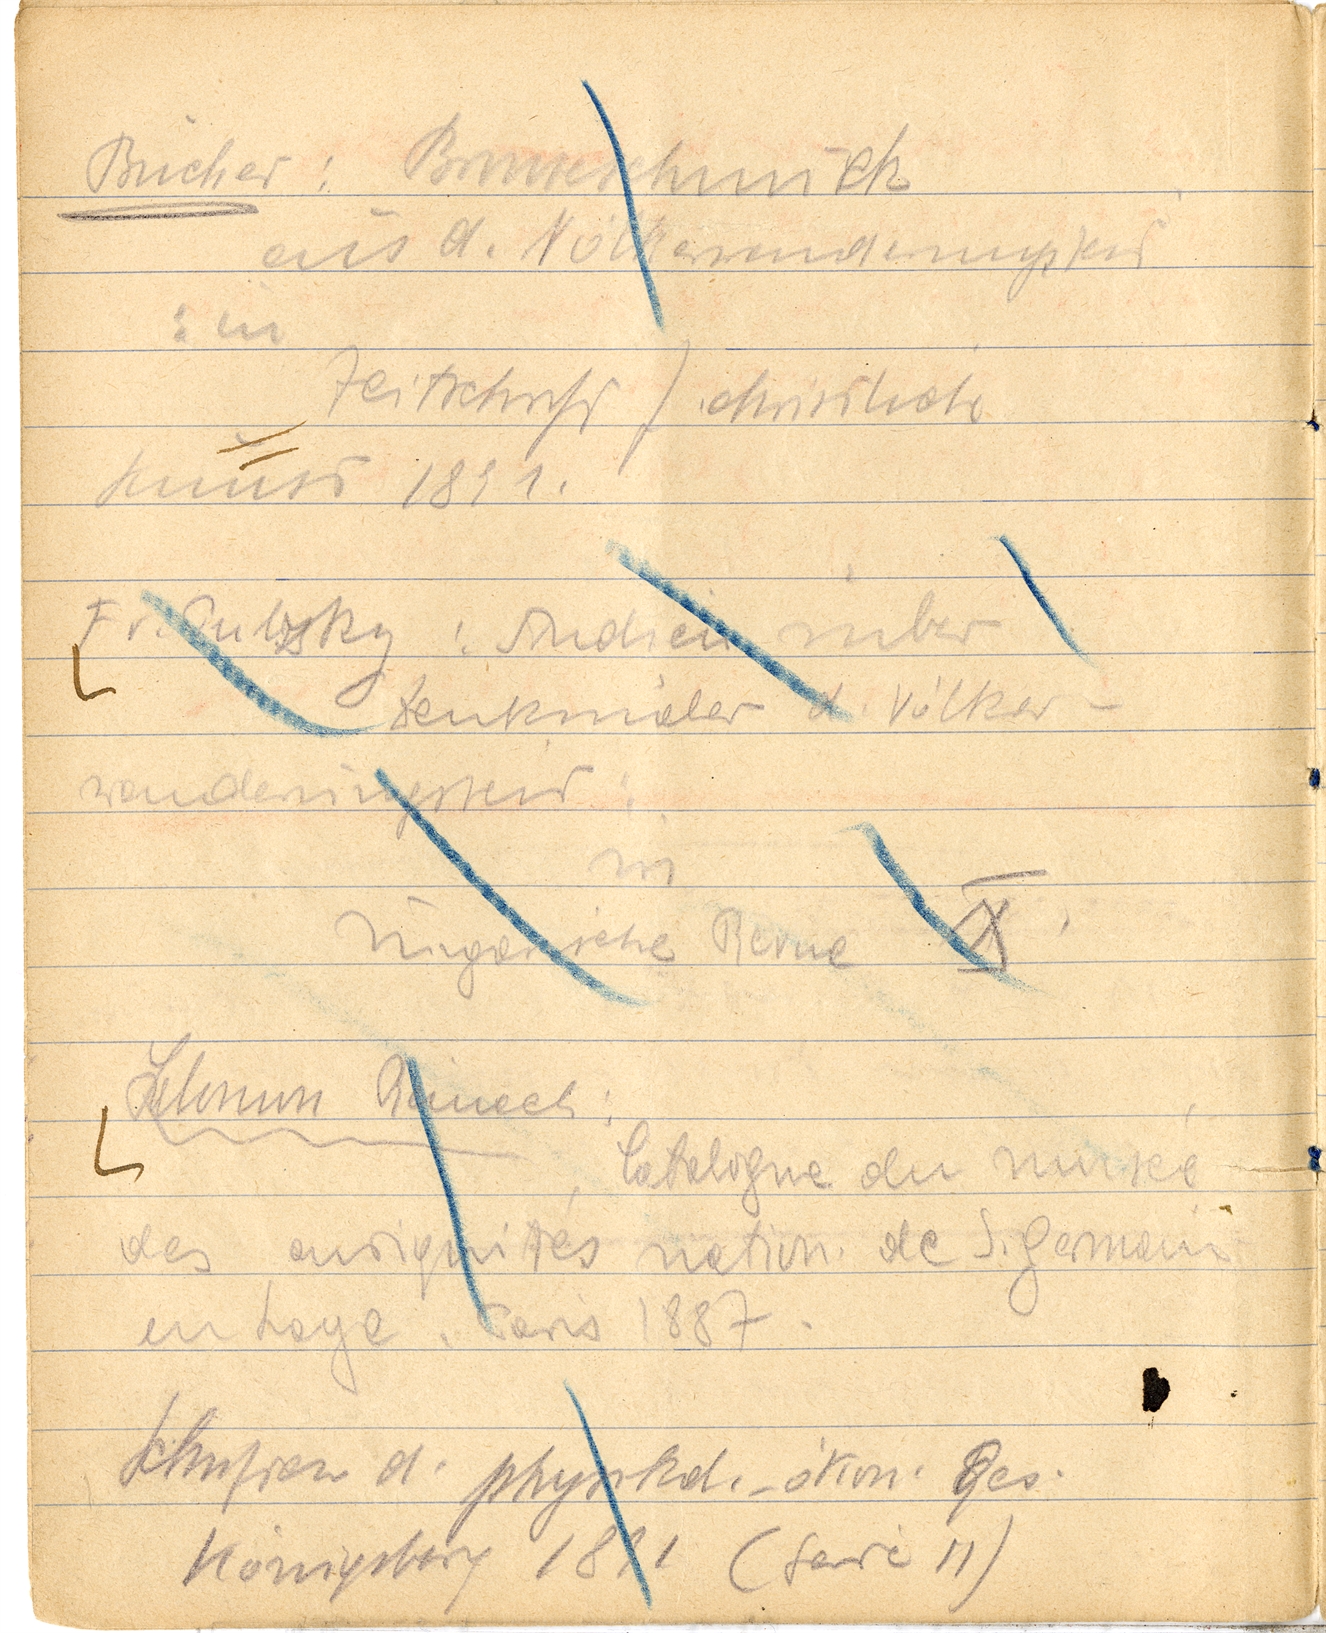 Bücher: Brunnschmuck
aus d. Völkerwanderungszeit
: in
Zeitschrift f. christliche
Kunst 1891.
Fr. Pulszky : Studien über
Denkmäler d. Völker-
wanderungszeit :
in
Ungarische Revue X.
Salomon Reinach :
Catalogue du musée
des antiquités nation. de S. Germain
en Laye. Paris 1887.
Schriften d. physikal.-ökon. Ges.
Königsberg 1891 (Serie II)